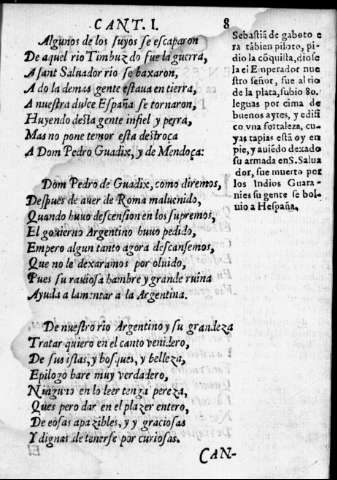 CANT. I. 8
Algunos de los suyos se escaparon
De aquel rio Timbuz do fue la guerra,
A sant Salvador rio se baxaron,
A do la demas gente estaua en tierra,
A nuestra dulce España se tornaron,
Huyendo desta gente infiel y perra,
Mas no pone temor esta destroça
A Dom Pedro Guadix, y de Mendoça:
Dom Pedro de Guadix, como diremos,
Despues de auer de Roma malucnido,
Quando huuo descension en los supremos,
El gouierno Argentino huuo pedido,
Empero algun tanto agora descansemos,
Que no le dexaramos por oluido,
Pues su rauiosa hambre y grande ruina
Ayuda a lamentar a la Argentina.
De nuestro rio Argentino y su grandeza
Tratar quiero en el canto venidero,
De sus islas, y bosques, y belleza,
Epilogo hare muy verdadero,
Ninguno en lo leer tenga pereza,
Ques pero dar en el plazer entero,
De cosas apazibles, y y graciosas
Y dignas de tenerse por curiosas.
CAN-
Sebastiã de gaboto e
ra tãbien piloto, pi-
dio la cõquista, diose
la el Emperador nue
stro señor, fue al rio
de la plata, subio 80.
leguas por cima de
buenos ayres, y edifi
co vna fortaleza, cu-
yas tapias está oy en
pie, y auiẽdo dexado
su armada en S. Salua
dor, fue muerto por
los Indios Guara-
nies su gente se bol-
uio a Hespaña.